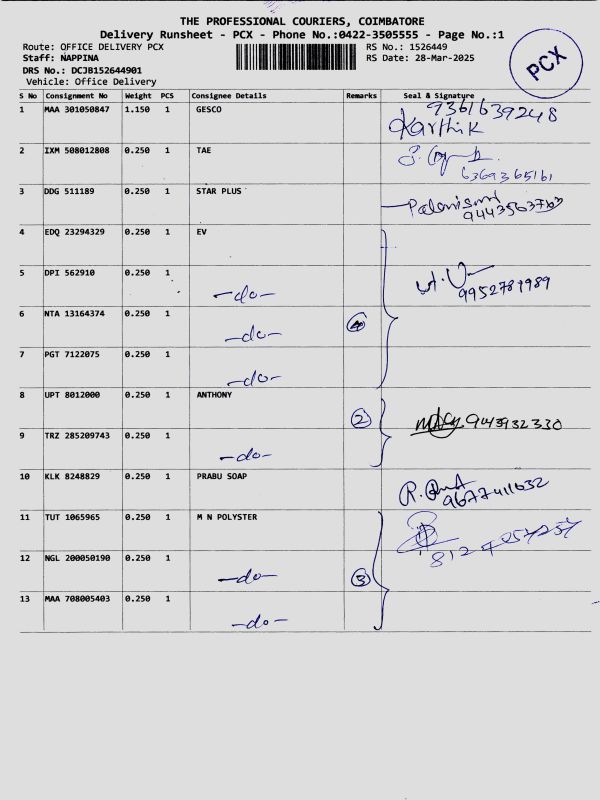 THE PROFESSIONAL COURIERS, COIMBATORE
Delivery Runsheet - PCX - Phone No.:0422-3505555 - Page No.:1
Route: OFFICE DELIVERY PCX RS No.: 1526449
Staff: NAPPINA RS Date: 28-Mar-2025
DRS No.: DCJB152644901
Vehicle: Office Delivery
PCX
S No Consignment No Weight PCS Consignee Details Remarks Seal & Signature
1 MAA 301050847 1.150 1 GESCO 9361639248
Karthik
2 IXM 508012808 0.250 1 TAE
6369365161
3 DDG 511189 0.250 1 STAR PLUS
4 EDQ 23294329 0.250 1 EV
5 DPI 562910 0.250 1 -do-
6 NTA 13164374 0.250 1 -do- 4
7 PGT 7122075 0.250 1 -do-
8 UPT 8012000 0.250 1 ANTHONY 2
9 TRZ 285209743 0.250 1 -do-
10 KLK 8248829 0.250 1 PRABU SOAP
9677411632
11 TUT 1065965 0.250 1 M N POLYSTER
12 NGL 200050190 0.250 1 -do- 3
13 MAA 708005403 0.250 1 -do-